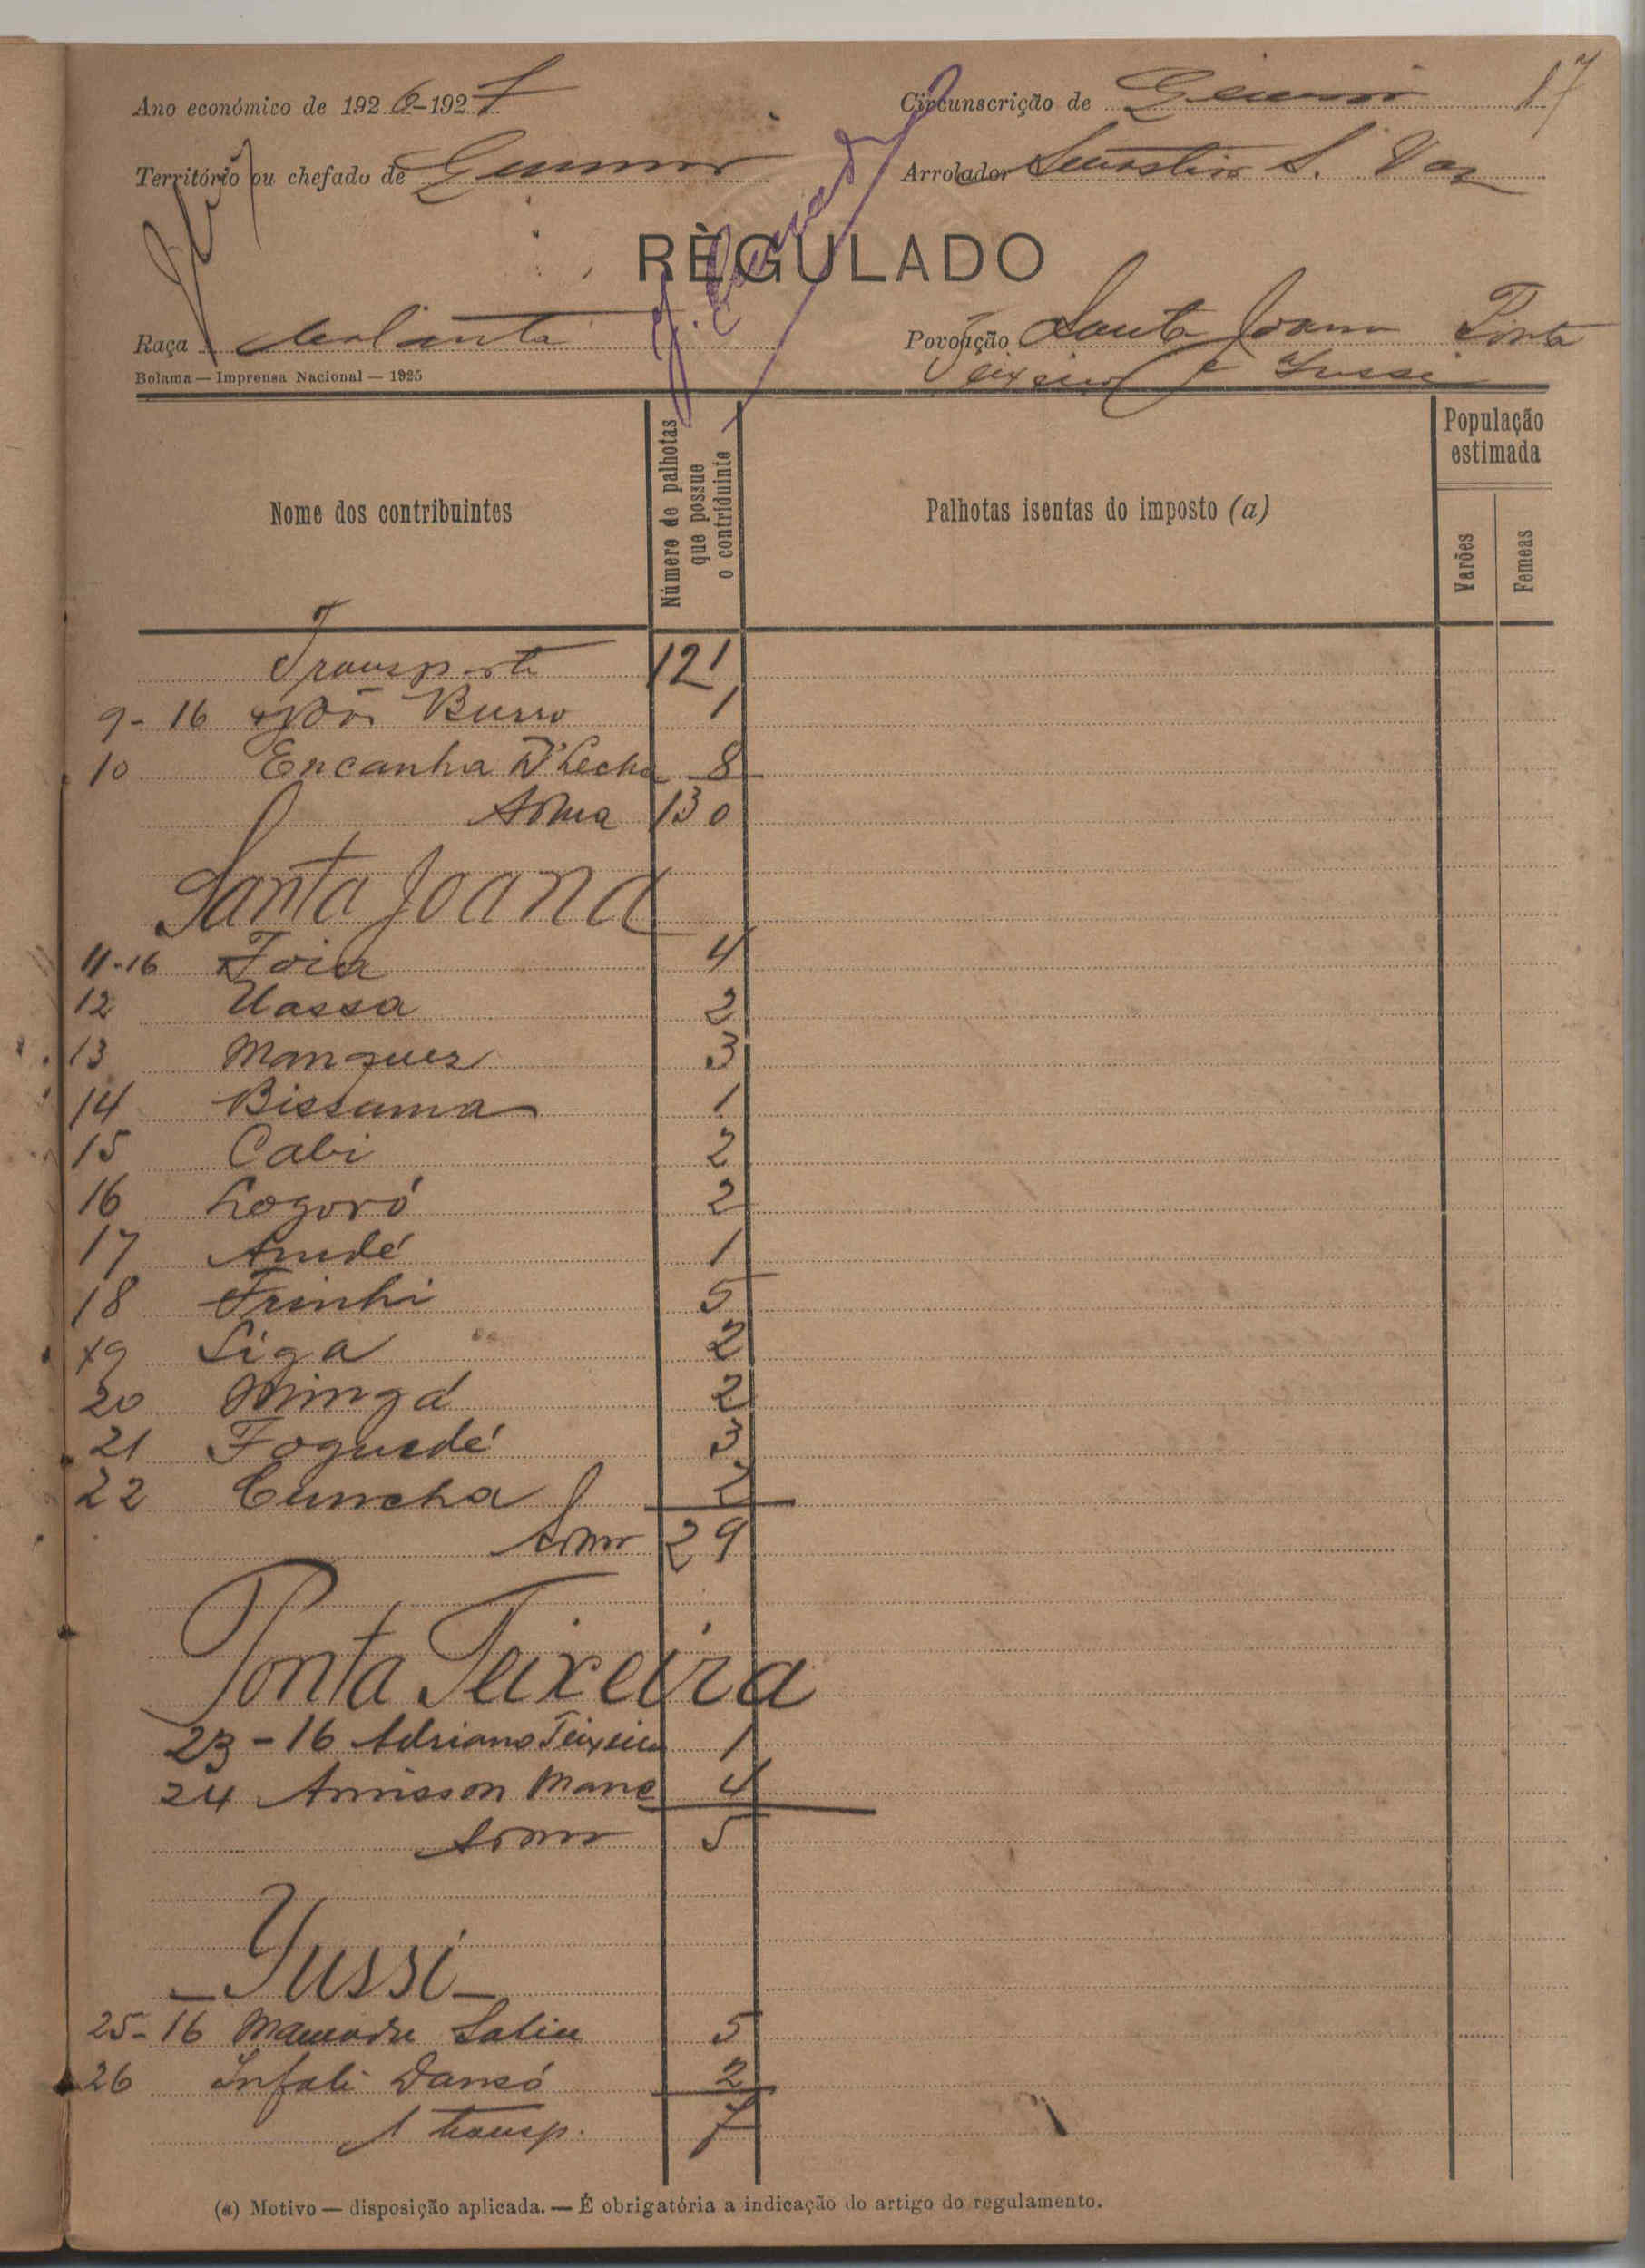 17
Ano económico de 1926-1927 Circunscrição de
Território ou chefado de Arrolador S. Vaz
RÈGULADO
Raça Povoação Santa Joana Ponta
Bolama — Imprensa Nacional — 1925 Teixeira e Yussi
Nome dos contribuintes
Número de palhotas
que possue
o contriduinte
Palhotas isentas do imposto (a)
População
estimada
Varões
Femeas
Transporte 121
9-16 Burro 1
10 Encanha N'Lecha 8
Soma 130
Santa Joana
11-16 Foia 4
12 Uassa 2
13 Manques 3
14 Bissuma 1
15 Cabi 2
16 Logoró 2
17 Andé 1
18 Frinhi 5
19 Siga 2
20 Mingá 2
21 Foguedé 3
22 Cuncha 2
Soma 29
Ponta Teixeira
23-16 Adriano Teixeira 1
24 Anisson Mane 4
Soma 5
Yussi
25-16 Mamadu Saliu 5
26 Infali Dansó 2
A transp. 7
(a) Motivo — disposição aplicada. — É obrigatória a indicação do artigo do regulamento.